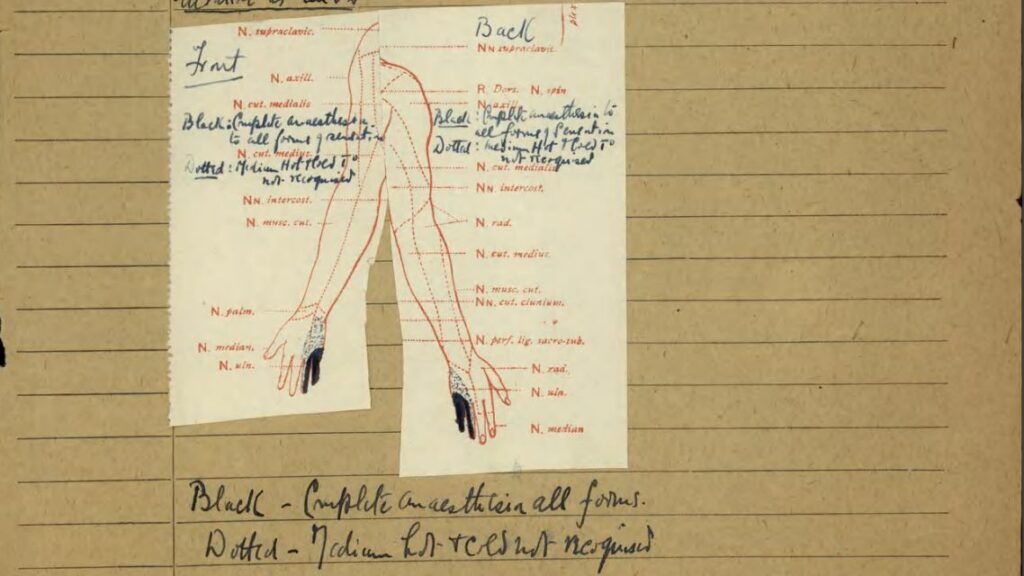 N. supraclavic.
Front
N. axill.
N. cut. medialis
Black: Complete anaesthesia
to all forms of sensation
N. cut. medius.
Dotted: Medium Hot & Cold T°
not recognised
Nn. intercost.
N. musc. cut.
N. palm.
N. median.
N. uln.
Back
Nn supraclavic.
R. Dors. N. spin
N. axill.
Black: Complete anaesthesia to
all forms of Sensation
Dotted: Medium Hot & Cold T°
not recognised
N. cut. medialis
Nn. intercost.
N. rad.
N. cut. medius.
N. musc. cut.
Nn. cut. clunium.
N. perf. lig. sacro-tub.
N. rad.
N. uln.
N. median
Black - Complete anaesthesia all forms.
Dotted - Medium hot & cold not recognised